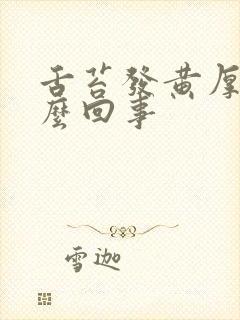 舌苔發黃厚
麼回事
雪迦